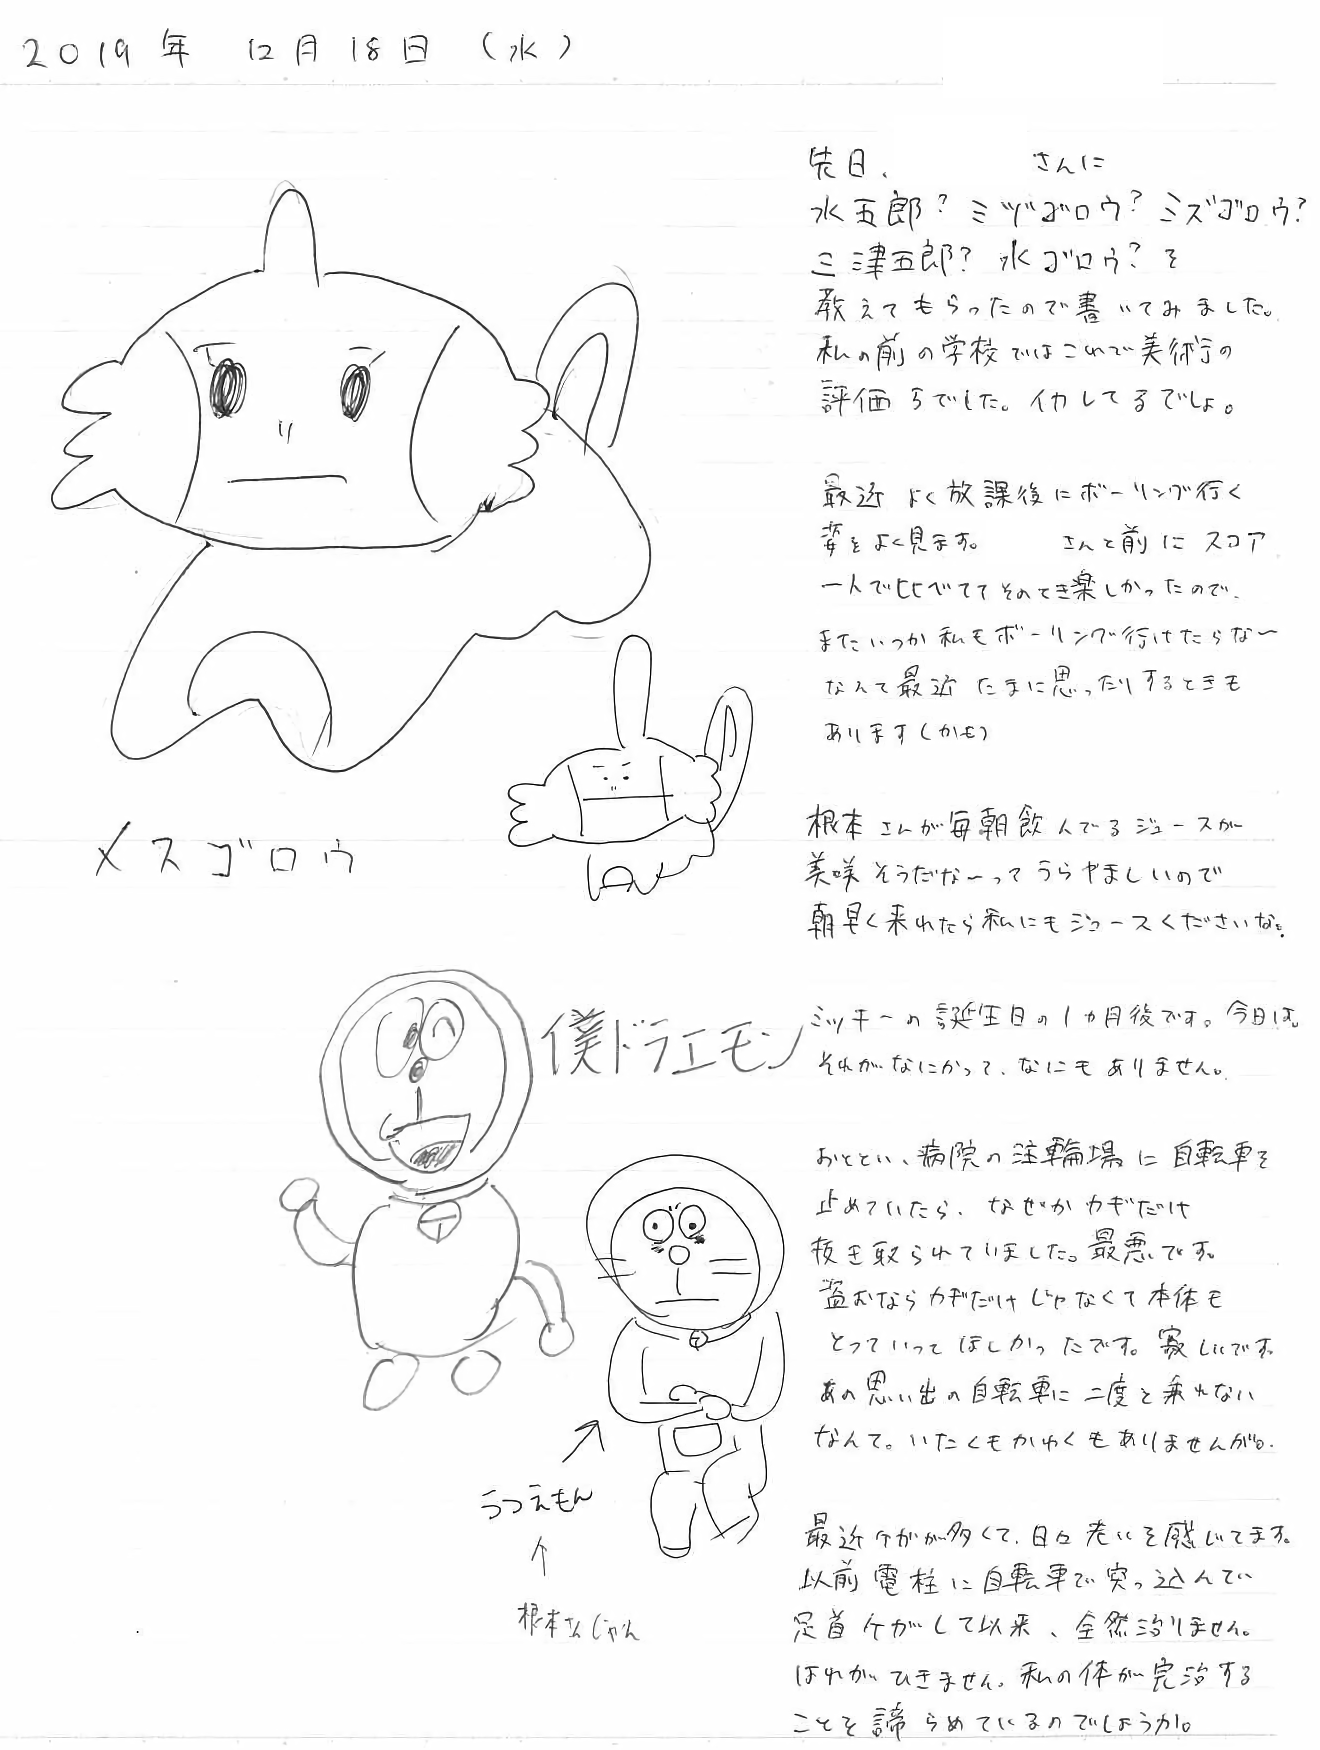 2019年 12月18日(水)
先日、 さんに
水五郎？ミヅゴロウ？ミズゴロウ？
三津五郎？水ゴロウ？を
教えてもらったので書いてみました。
私の前の学校ではこれで美術の
評価5でした。イカしてるでしょ。
最近よく放課後にボーリング行く
姿をよく見ます。 さんと前にスコア
一人で比べててそのとき楽しかったので、
またいつか私もボーリング行けたらな〜
なんて最近たまに思ったりするときも
あります(かも)
メスゴロウ
根本さんが毎朝飲んでるジュースが
美味そうだな〜ってうらやましいので
朝早く来れたら私にもジュースくださいな。
僕ドラエモン
ミッキーの誕生日の1カ月後です。今日は。
それがなにかって、なにもありません。
おととい、病院の注輪場に自転車を
止めていたら、なぜかカギだけ
抜き取られていました。最悪です。
盗むならカギだけじゃなくて本体も
とっていってほしかったです。寂しいです。
あの思い出の自転車に二度と乗れない
なんて。いたくもかゆくもありませんが。
うつえもん
根本さんじゃん
最近ケガが多くて、日々老いを感じてます。
以前電柱に自転車で突っ込んで
足首ケガして以来、全然治りません。
はれがひきません。私の体が完治する
ことを諦らめているのでしょうか。